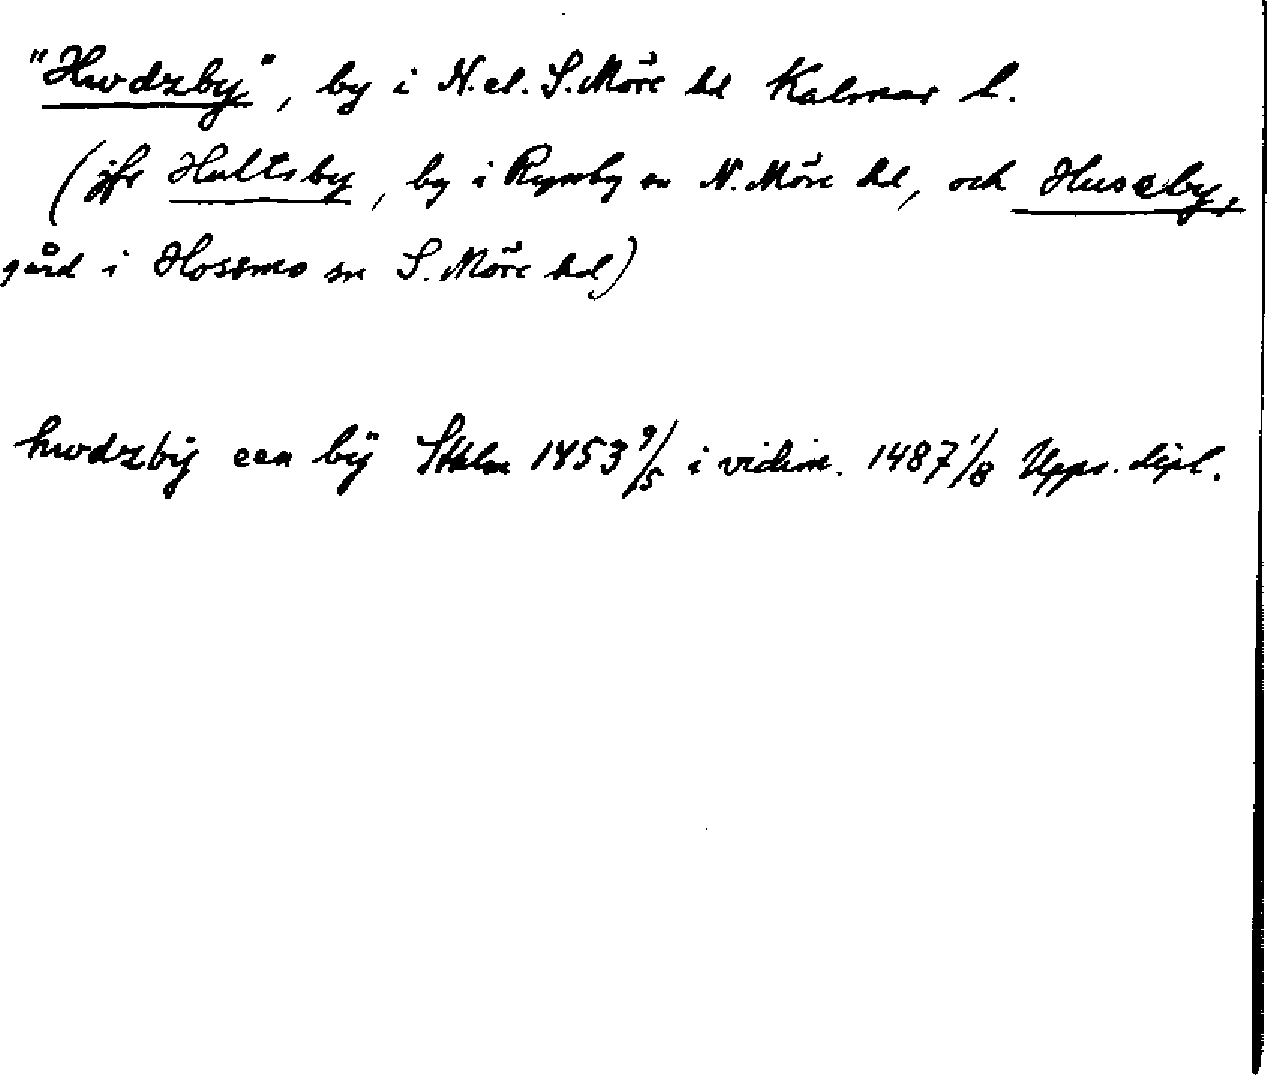 "Hwdzby", by i N. el. S. Möre hd Kalmar l.
(jfr Hultsby, by i Ryssby sn N. Möre hd, och Huseby,
gård i Hossmo sn S. Möre hd)
hwdzbÿ een bÿ Sthlm 1453 9/5 i vidim. 1487 1/8 Upps. dipl.